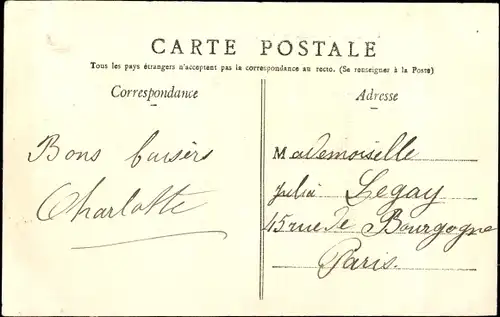 CARTE POSTALE
Tous les pays étrangers n'acceptent pas la correspondance au recto. (Se renseigner à la Poste)
Correspondance
Bons baisers
Charlotte
Adresse
Mademoiselle
Julia Legay
45 rue de Bourgogne
Paris.